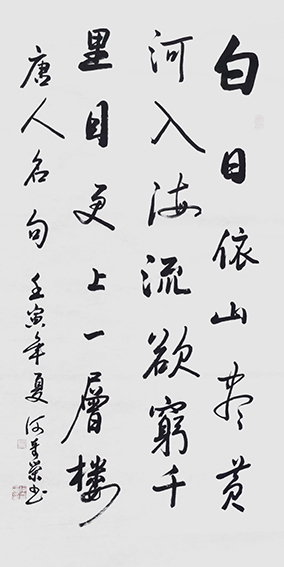 白日依山尽黄
河入海流欲窮千
里目更上一層楼
唐人名句 壬寅年夏 何書